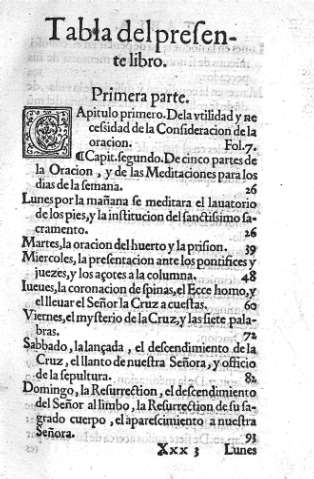 Tabla del presen-
te libro.
Primera parte.
CApitulo primero. De la vtilidad y ne
cessidad de la Consideracion de la
oracion. Fol. 7.
¶Capit. segundo. De cinco partes de
la Oracion, y de las Meditaciones para los
dias de la semana. 26
Lunes por la mañana se meditara el lauatorio
de los pies, y la institucion del sanctissimo sa-
cramento. 26
Martes, la oracion del huerto y la prision. 39
Miercoles, la presentacion ante los pontifices y
juezes, y los açotes a la columna. 48
Iueues, la coronacion de spinas, el Ecce homo, y
el lleuar el Señor la Cruz a cuestas. 60
Viernes, el mysterio de la Cruz, y las siete pala-
bras. 72
Sabbado, la lançada, el descendimiento de la
Cruz, el llanto de nuestra Señora, y officio
de la sepultura. 82
Domingo, la Resurrection, el descendimiento
del Señor al limbo, la Resurrection de su sa-
grado cuerpo, el aparescimiento a nuestra
Señora. 93
Xxx 3 Lunes